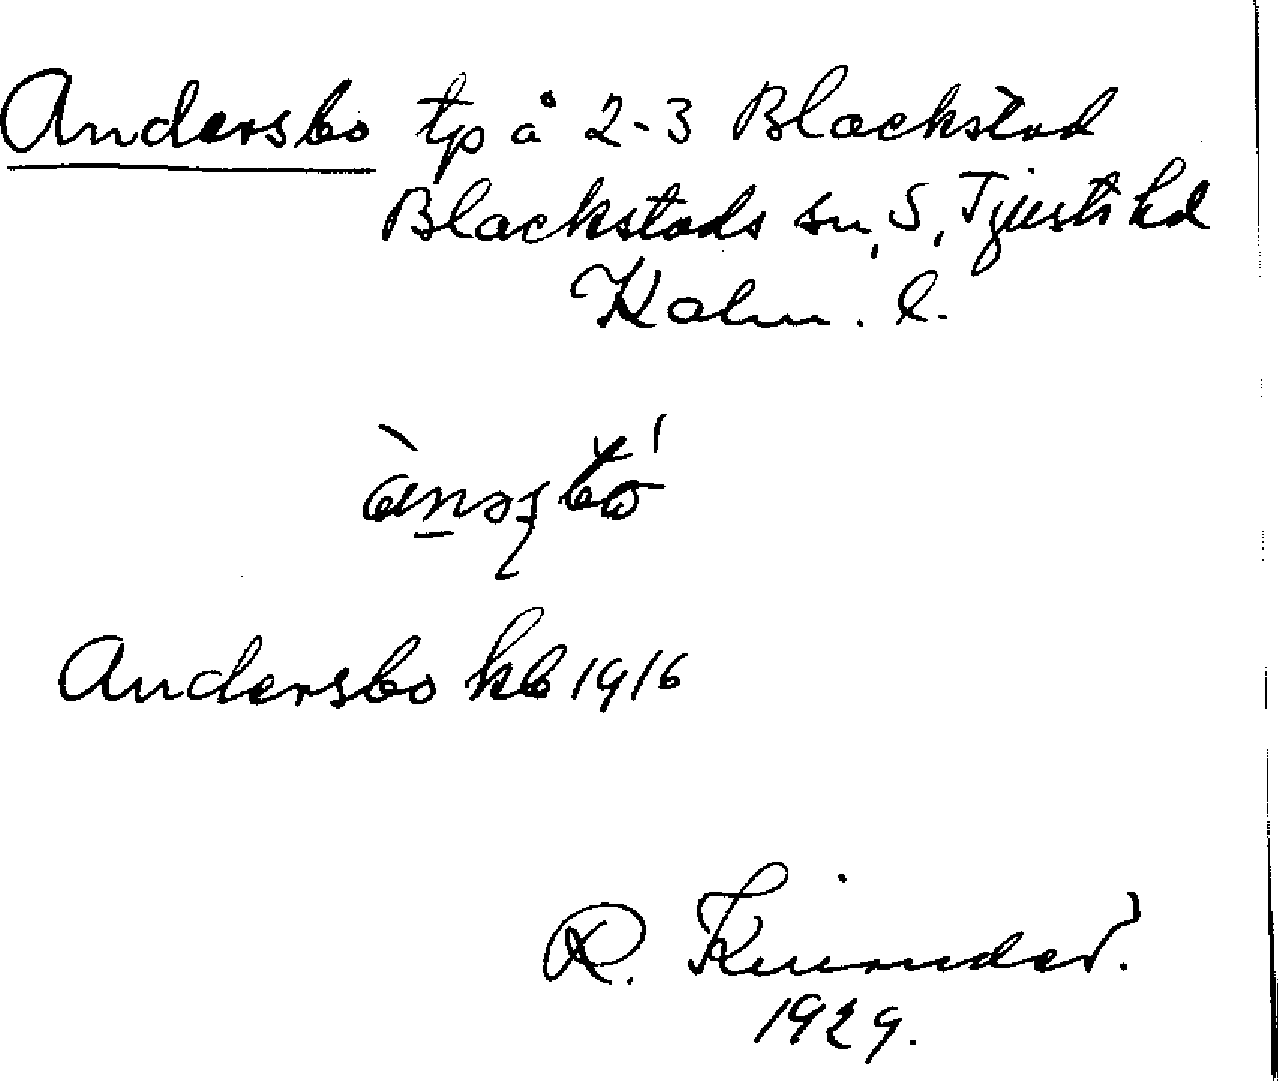 Andersbo tp å 2-3 Blackstad
Blackstads sn, S, Tjusts hd
Kalm. l.
Andersbo kb 1916
R.
1929.